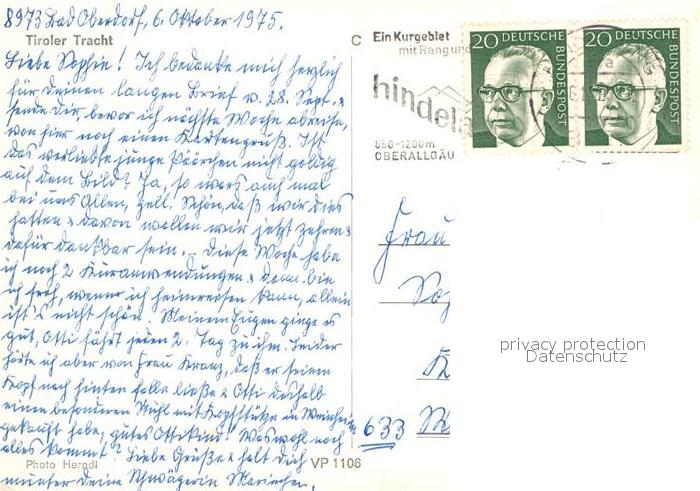 8973 Bad Oberdorf, 6. Oktober 1975.
Tiroler Tracht
Liebe Sophie! Ich bedanke mich herzlich
für Deinen langen Brief v. 28. Sept. &
sende Dir, bevor ich nächste Woche abreise,
von hier noch einen Kartengruß. Ist
das verliebte junge Pärchen nicht goldig
auf dem Bild? Ja, so wars auch mal
bei uns Allen, gell. Schön, daß wir dies
hatten & davon wollen wir jetzt zehren &
dafür dankbar sein. - Diese Woche habe
ich noch 2 Kuranwendungen & dann bin
ich froh, wenn ich heimreisen kann, allein
ist's nicht schön. Meinem Eugen ginge es
gut, Otti fährt jeden 2. Tag zu ihm. Leider
hörte ich aber von Frau Kranz, daß er seinen
Kopf nach hinten falle ließe & Otti deshalb
einen besonderen Stuhl mit Kopfstütze in Weinheim
gekauft habe, gutes Ottikind! Was wohl noch
alles kommt? Liebe Grüße & halt Dich
munter Deine Schwägerin Mariechen.
Photo Herndl
VP 1106
C
Ein Kurgebiet
mit Rang und
hindela
850-1200m
OBERALLGÄU
20 DEUTSCHE BUNDESPOST
20 DEUTSCHE BUNDESPOST
Frau
So
633
privacy protection
Datenschutz